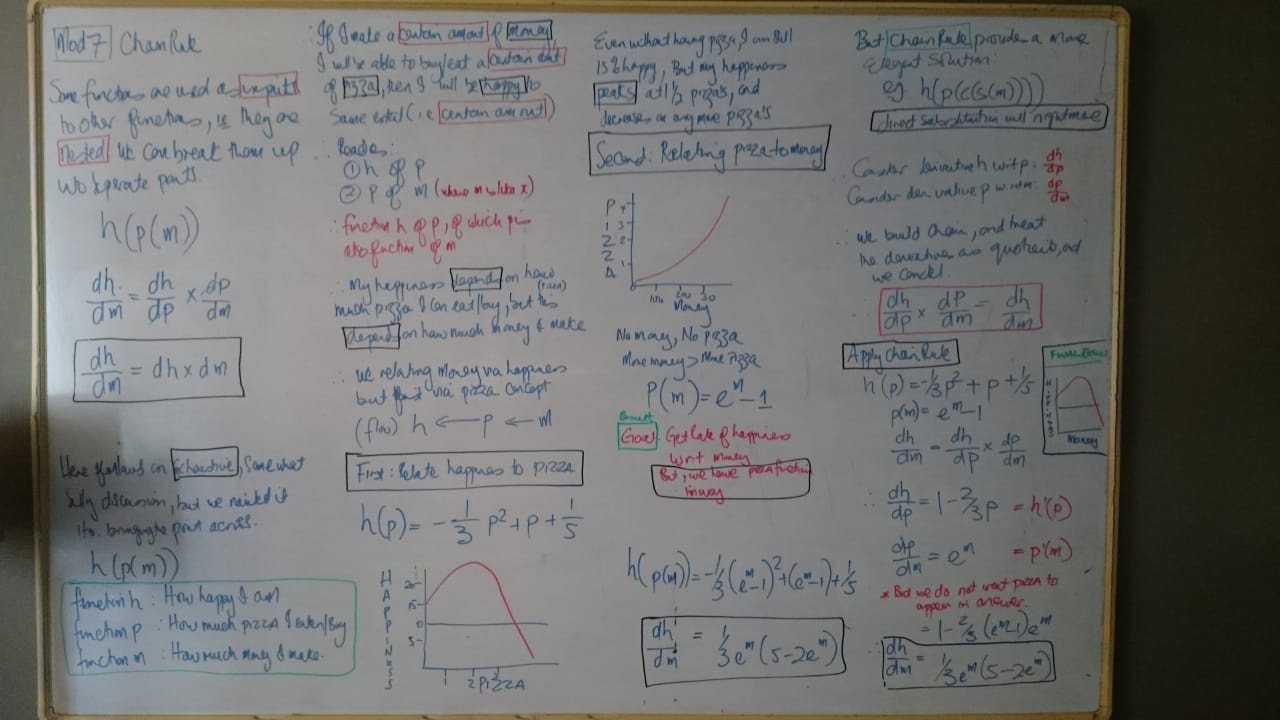 Mod 7 Chain Rule
Some functions are used as inputs
to other functions, ie they are
Nested. We can break them up
into seperate parts.
h(p(m))
dh/dm = dh/dp × dp/dm
dh/dm = dh × dm
on exhaustive, somewhat
silly discussion, but we need it
bringing the point across.
h(p(m))
function h : How happy I am
function p : How much pizza I eaten/buy
function m : How much money I make.
∴ If I make a certain amount of money,
I will be able to buy/eat a certain amt
of pizza, then I will be happy to
same extent (i.e certain amount)
∴ Reads:
① h of p
② p of m (where m is like x)
∴ function h of p, of which p is
also function of m
∴ My happiness depends on how
much (pizza) pizza I can eat/buy, but this
depends on how much money I make
∴ we relating money via happiness
but first via pizza concept
(flow) h ← p ← m
First: Relate happiness to PIZZA
h(p) = -1/3 p² + p + 1/5
HAPPINESS
20
15
0
5
1 2 3
PIZZA
Even without having pizza, I am still
15% happy, But my happiness
peaks at 1½ pizza's, and
decreases on any more pizza's
Second: Relating pizza to money
PIZZA
4
3
2
1
0
100 200 30
Money
No money, No pizza
More money > More Pizza
P(m) = eᵐ - 1
Goal: Get Rate of happiness
w.r.t money
But, we have pizza function
in way
h(p(m)) = -1/3(eᵐ-1)² + (eᵐ-1) + 1/5
dh/dm = 1/3 eᵐ (5-2eᵐ)
But Chain Rule provides a more
Elegant Solution:
eg h(p(c(s(m))))
direct substitution will nightmare
∴ Consider derivative h wrt p: dh/dp
Consider derivative p w.r.t m: dp/dm
∴ we build chain, and treat
the derivatives as quotients, and
we cancel.
∴ dh/dp × dp/dm = dh/dm
Apply Chain Rule
h(p) = -1/3p² + p + 1/5
p(m) = eᵐ - 1
dh/dm = dh/dp × dp/dm
∴ dh/dp = 1 - 2/3p = h'(p)
dp/dm = eᵐ = p'(m)
* But we do not want pizza to
appear in answer.
= 1 - 2/3(eᵐ-1)eᵐ
∴ dh/dm = 1/3eᵐ(5-2eᵐ)
FINAL RESULT
Money